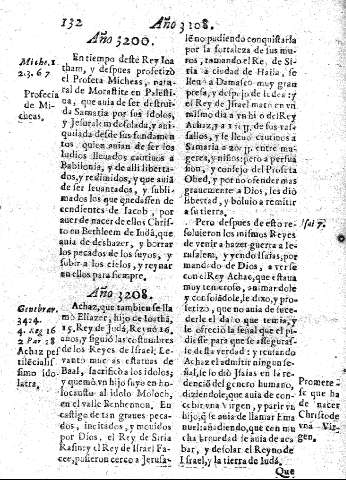 132 Año 3108.
Año 3200.
En tiempo deste Rey Ioa
tham, y despues profetizò
el Profeta Micheas, natu-
ral de Morastite en Palesti-
na, que auia de ser destrui-
da Samaria por sus idolos,
y Jerusalem desolada, y ani-
quilada desde sus fundamen
tos, quien auian de ser los
Iudios lleuados cautiuos a
Babilonia, y de alli liberta-
dos, y redimidos, y que auia
de ser leuantados, y subli-
mados los que quedassen de
cendientes de Iacob, por
auer de nacer de ellos Chris-
to en Bethleem de Iudà, que
auia de deshazer, y borrar
los pecados de los suyos, y
subir a los cielos, y reynar
en ellos para siempre.
Miche. 1
2. 3. 6 7
Profecia
de Mi-
cheas.
Año 3208.
Achaz, que tambien se lla
mò Eliazer, hijo de Ioathã,
15. Rey de Judà, Reynò 16.
años, y siguiò las costumbres
de los Reyes de Israel; Le-
vantò muchas estatuas de
Baal, sacrificò a los idolos;
y quemò vn hijo suyo en ho-
locausto al idolo Moloch,
en el valle Benhennon. En
castigo de tan graues peca-
dos, incitados, y mouidos
por Dios, el Rey de Siria
Rasin; y el Rey de Israel Fa-
cee, pusieron cerco a Jerusa-
Genebrar.
3414.
4. Reg 16
2 Par 28
Achaz pes
tilēcialis
simo ido
latra.
lē no pudiendo conquistarla
por la fortaleza de sus mu-
ros, tomando el Rey de Si-
ria a ciudad de Haila, se
lleuò a Damasco muy gran
presa, y despojo de ella; y
el Rey de Israel matò en vn
mismo dia a vn hijo del Rey
Achaz, y a
sallos, y se lleuò cautiuos a
Samaria a 20 U. entre mu-
geres, y niños; pero a persua
sion, y consejo del Profeta
Obed, y por no ofender mas
grauemente a Dios, les diò
libertad, y boluiò a remitir
a su tierra.
Pero despues de esto re-
soluieron los mismos Reyes
de venir a hazer guerra a Ie-
rusalem, y yendo Isaias, por
mandado de Dios, a verse
con el Rey Achaz, que estaua
muy temeroso, a animarle
y consolàdole, le dixo, y pro-
fetizò, que no auia de suce-
derle el daño que temia, y
le ofreciò la señal que el pi-
diesse para que se assegu as-
se de esta verdad: y reusando
Achaz el admitir ningun se-
ñal, le diò Isaias en la re-
dencion del genero humano,
diziendole, que auia de con-
cebir vna Virgen, y parir vn
hijo, q̃ se auia de llamar Ema
nuel: añadiendo, que con mu
cha breuedad se auia de aca-
bar, y desolar el Reyno de
Israel, y la tierra de Iudà.
Isai 7.
Promete
se que ha
de nacer
Christo de
vna Vir-
gen.
Que